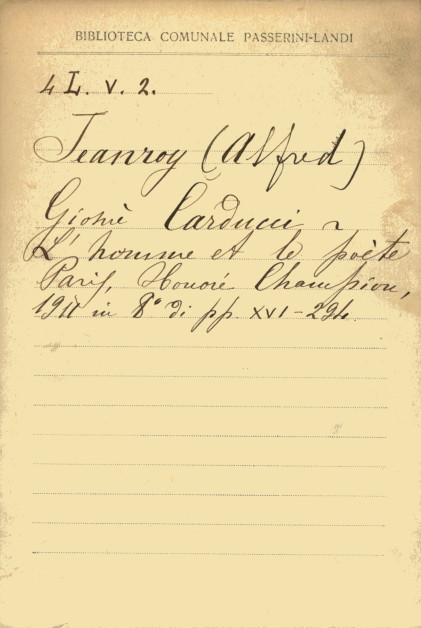 BIBLIOTECA COMUNALE PASSERINI-LANDI
4 L. V. 2.
Jeanroy (Alfred)
Giosuè Carducci ~
L'homme et le poète
Paris, Honoré Champion,
1911 in 8° di pp. XVI-294.